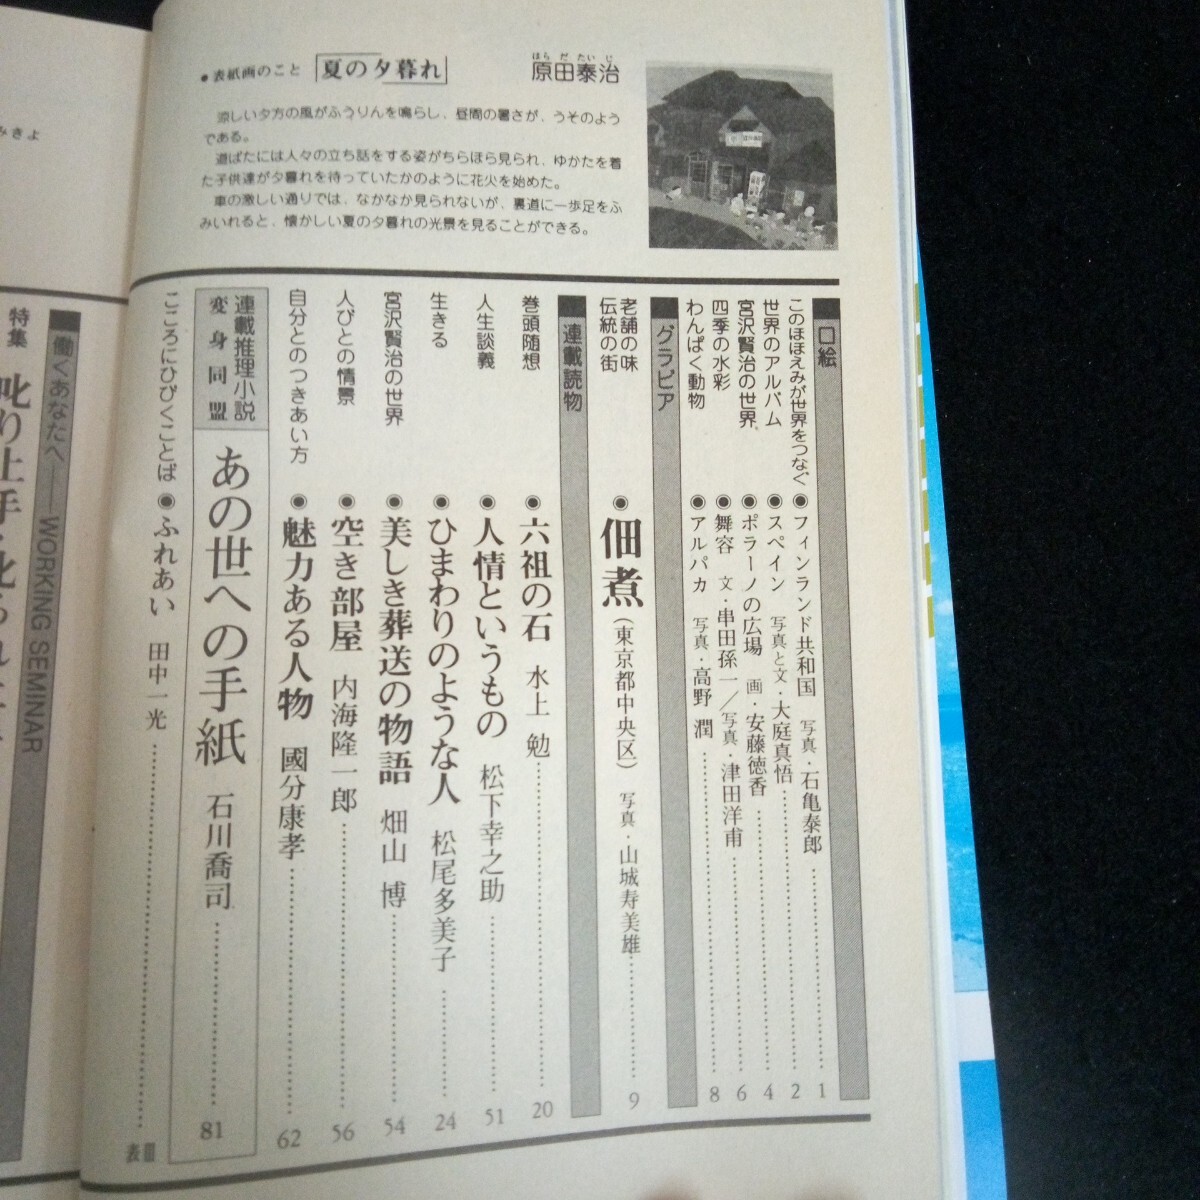 ●表紙画のこと 夏の夕暮れ
はらだたいじ
原田泰治
涼しい夕方の風がふうりんを鳴らし、昼間の暑さが、うそのよう
である。
道ばたには人々の立ち話をする姿がちらほら見られ、ゆかたを着
た子供達が夕暮れを待っていたかのように花火を始めた。
車の激しい通りでは、なかなか見られないが、裏道に一歩足をふ
みいれると、懐かしい夏の夕暮れの光景を見ることができる。
口絵
このほほえみが世界をつなぐ●フィンランド共和国 写真・石亀泰郎 1
世界のアルバム●スペイン 写真と文・大庭真悟 2
宮沢賢治の世界●ポラーノの広場 画・安藤徳香 4
四季の水彩●舞容 文・串田孫一／写真・津田洋甫 6
わんぱく動物●アルパカ 写真・高野 潤 8
グラビア
老舗の味
伝統の街●佃煮(東京都中央区) 写真・山城寿美雄 9
連載読物
巻頭随想●六祖の石 水上 勉 20
人生談義●人情というもの 松下幸之助 51
生きる●ひまわりのような人 松尾多美子 24
宮沢賢治の世界●美しき葬送の物語 畑山 博 54
人びとの情景●空き部屋 内海隆一郎 56
自分とのつきあい方●魅力ある人物 國分康孝 62
連載推理小説
変身同盟 あの世への手紙 石川喬司 81
こころにひびくことば●ふれあい 田中一光 表Ⅲ
みきよ
働くあなたへ——WORKING SEMINAR
特集
叱り上手・叱られ上手